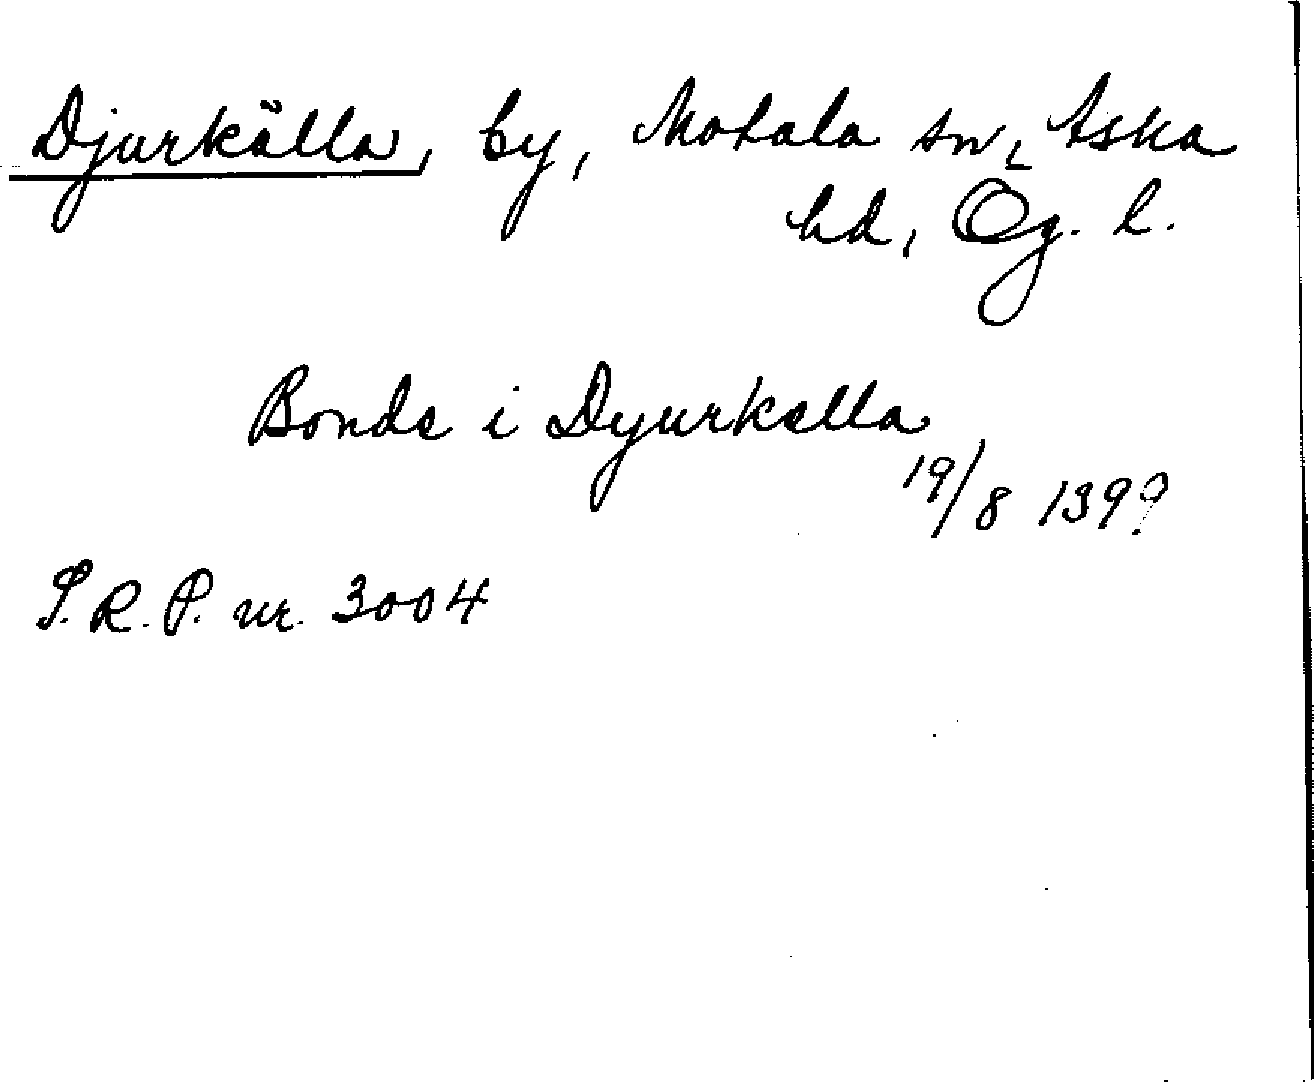 Djurkälla, by, Motala sn, Aska
hd, Ög. l.
Bonde i Dyurkella
19/8 1399
S.R.P. nr. 3004